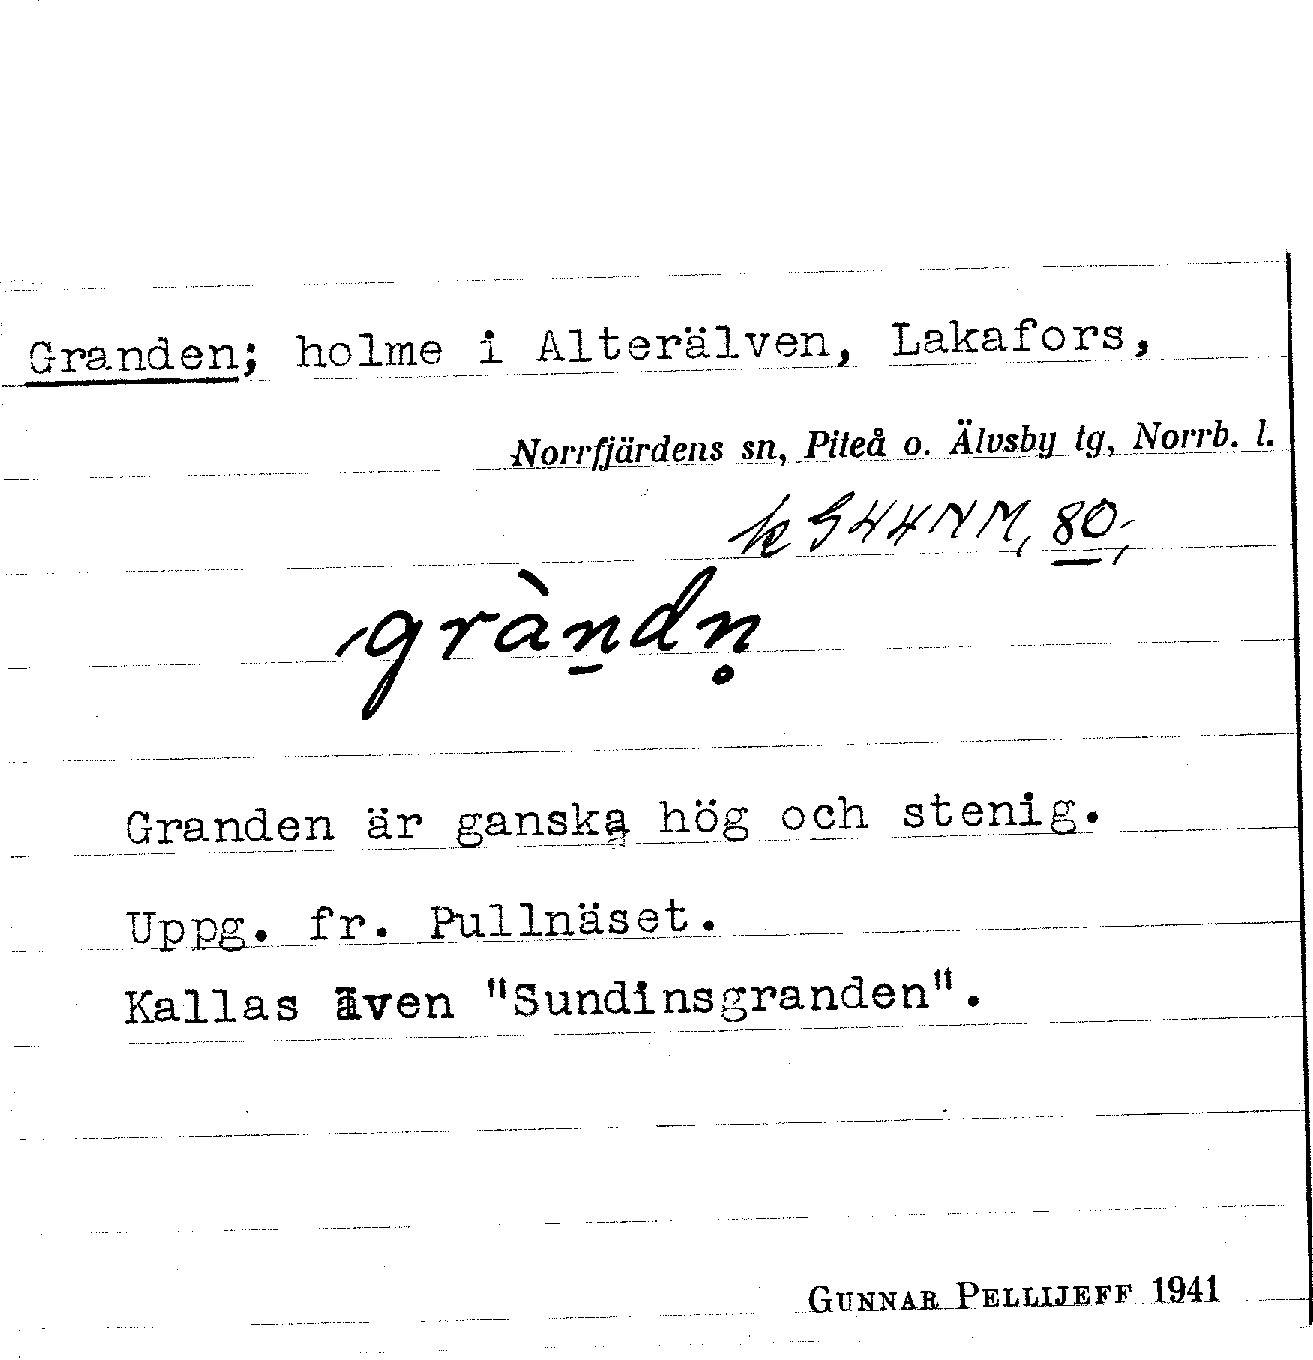 Granden; holme i Alterälven, Lakafors,
Norrfjärdens sn, Piteå o. Älvsby tg, Norrb. l.
k G44NM, 80,
gràn̠dn̥
Granden är ganska hög och stenig.
Uppg. fr. Pullnäset.
Kallas även "Sundinsgranden".
GUNNAR PELLIJEFF 1941